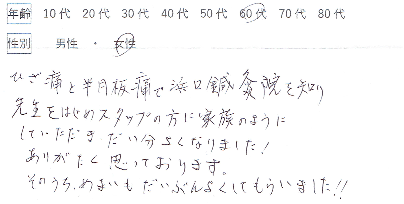 年齢 10代 20代 30代 40代 50代 60代 70代 80代
性別 男性 ・ 女性
ひざ痛と半月板痛で浜口鍼灸院を知り
先生をはじめスタッフの方に家族のように
していただき だい分よくなりました!
ありがたく思っております。
そのうち、めまいもだいぶんよくしてもらいました!!